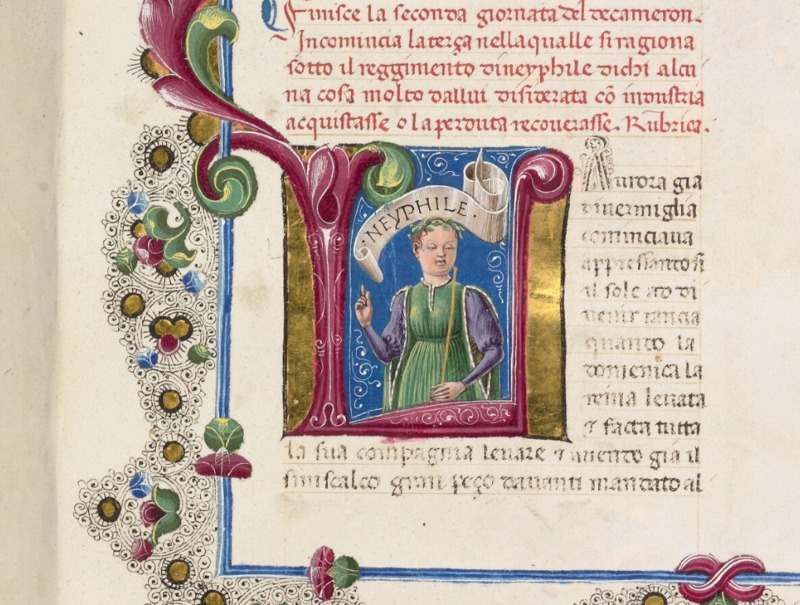 Finisce la seconda giornata del decameron.
Incomincia la terça nella qualle si ragiona
sotto il reggimento di neyphile di chi alcu
na cosa molto da llui disiderata cō industria
acquistasse o la perduta recouerasse. Rubrica.
NEYPHILE
Aurora gia
di uermiglia
cominciaua
appressantosi
il sole
uenir rancia
quanto la
domenica la
reina leuata
& facta tutta
la sua compagnia leuare & auento già il
siniscalco gran peço dauanti mandato al